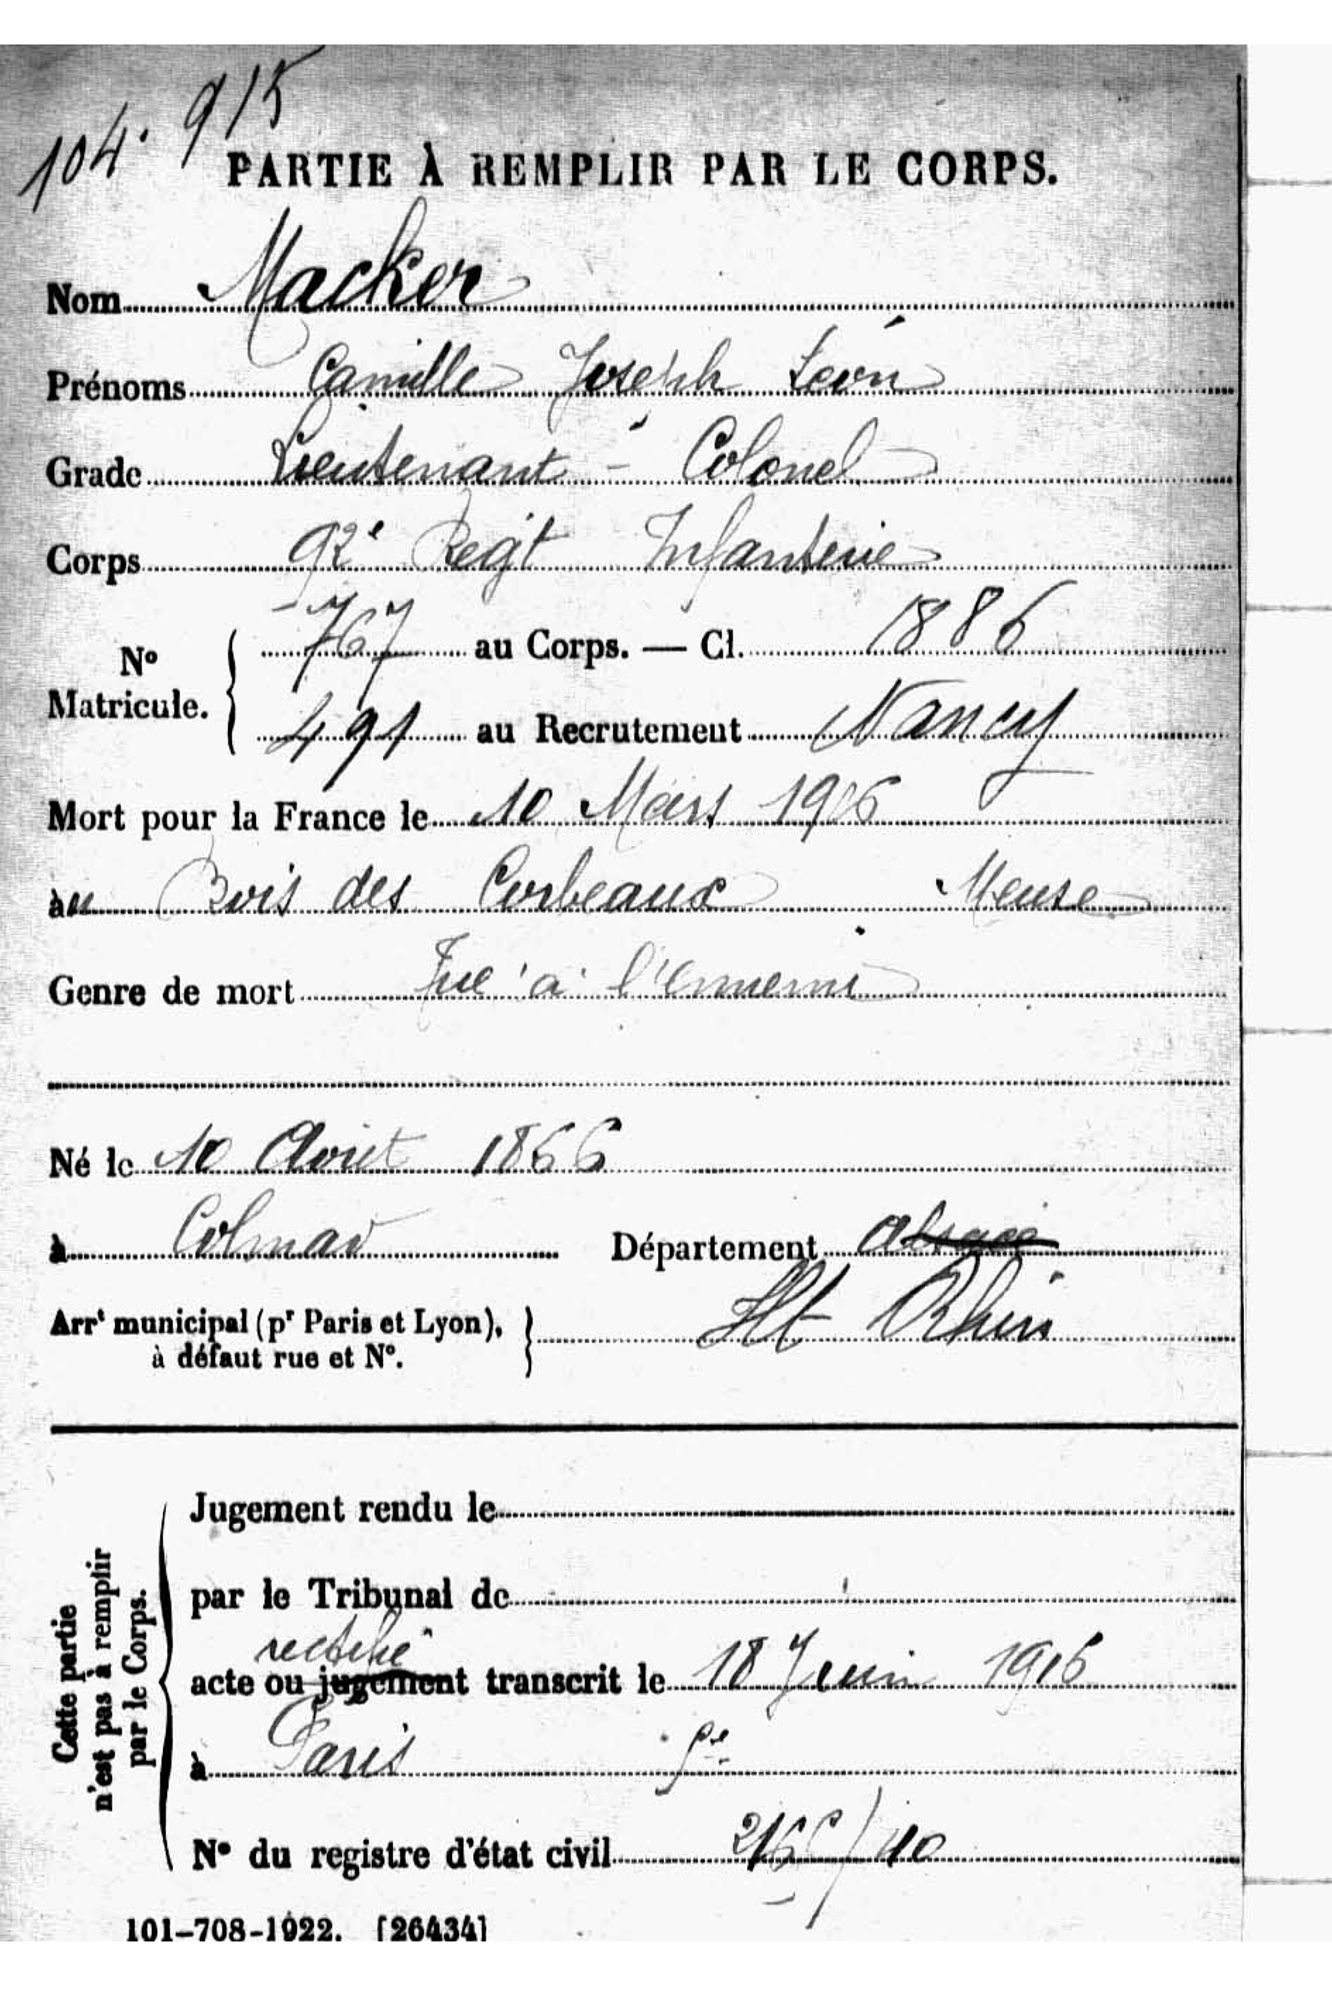 104.915
PARTIE À REMPLIR PAR LE CORPS.
Nom Macker
Prénoms Camille Joseph Léon
Grade Lieutenant-Colonel
Corps 92e Regt Infanterie
No Matricule. { 767 au Corps. — Cl. 1886
491 au Recrutement Nancy
Mort pour la France le 10 Mars 1916
au Bois des Corbeaux Meuse
Genre de mort Tué à l'ennemi
Né le 10 Aout 1866
à Colmar Département Alsace
Arrt municipal (pr Paris et Lyon), à défaut rue et No. } Ht Rhin
Cette partie n'est pas à remplir par le Corps.
Jugement rendu le
par le Tribunal de
rectifié
acte ou jugement transcrit le 18 Juin 1916
à Paris
No du registre d'état civil
101-708-1922. [26434]